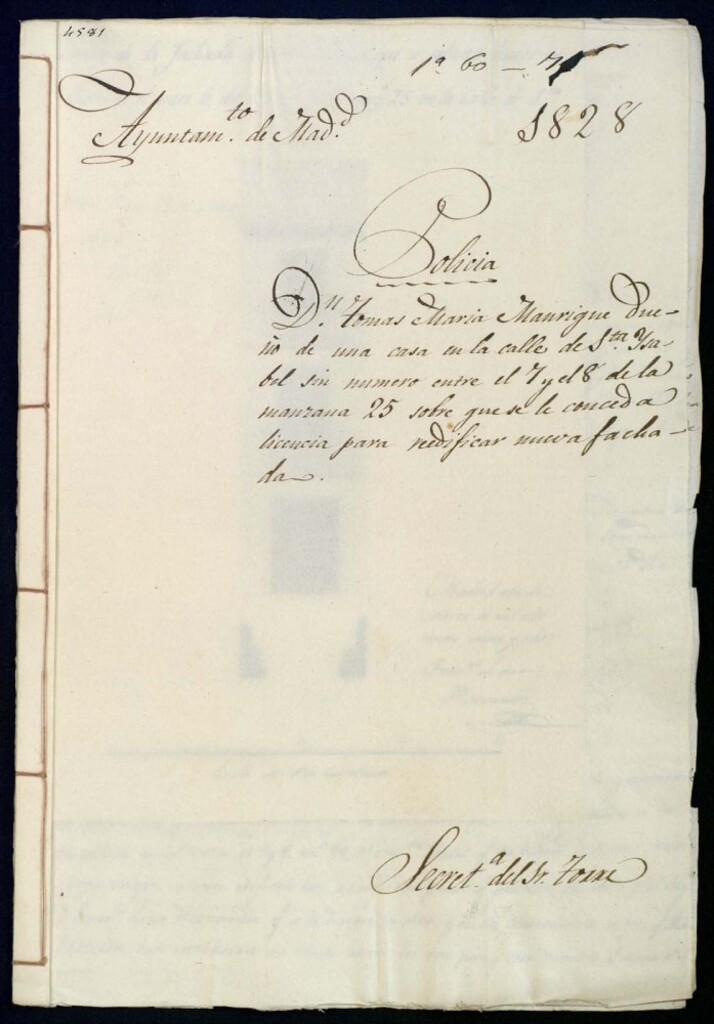 4581
1ª 60 - 7
Ayuntam.to de Mad.d
1828
Policia
D.n Tomas Maria Manrique Due-
ño de una casa en la calle de S.ta Ysa-
bel sin numero entre el 7 y el 8 de la
manzana 25 sobre que se le conceda
licencia para redificar nueva facha-
da.
Secret.ª del Sr. Torre